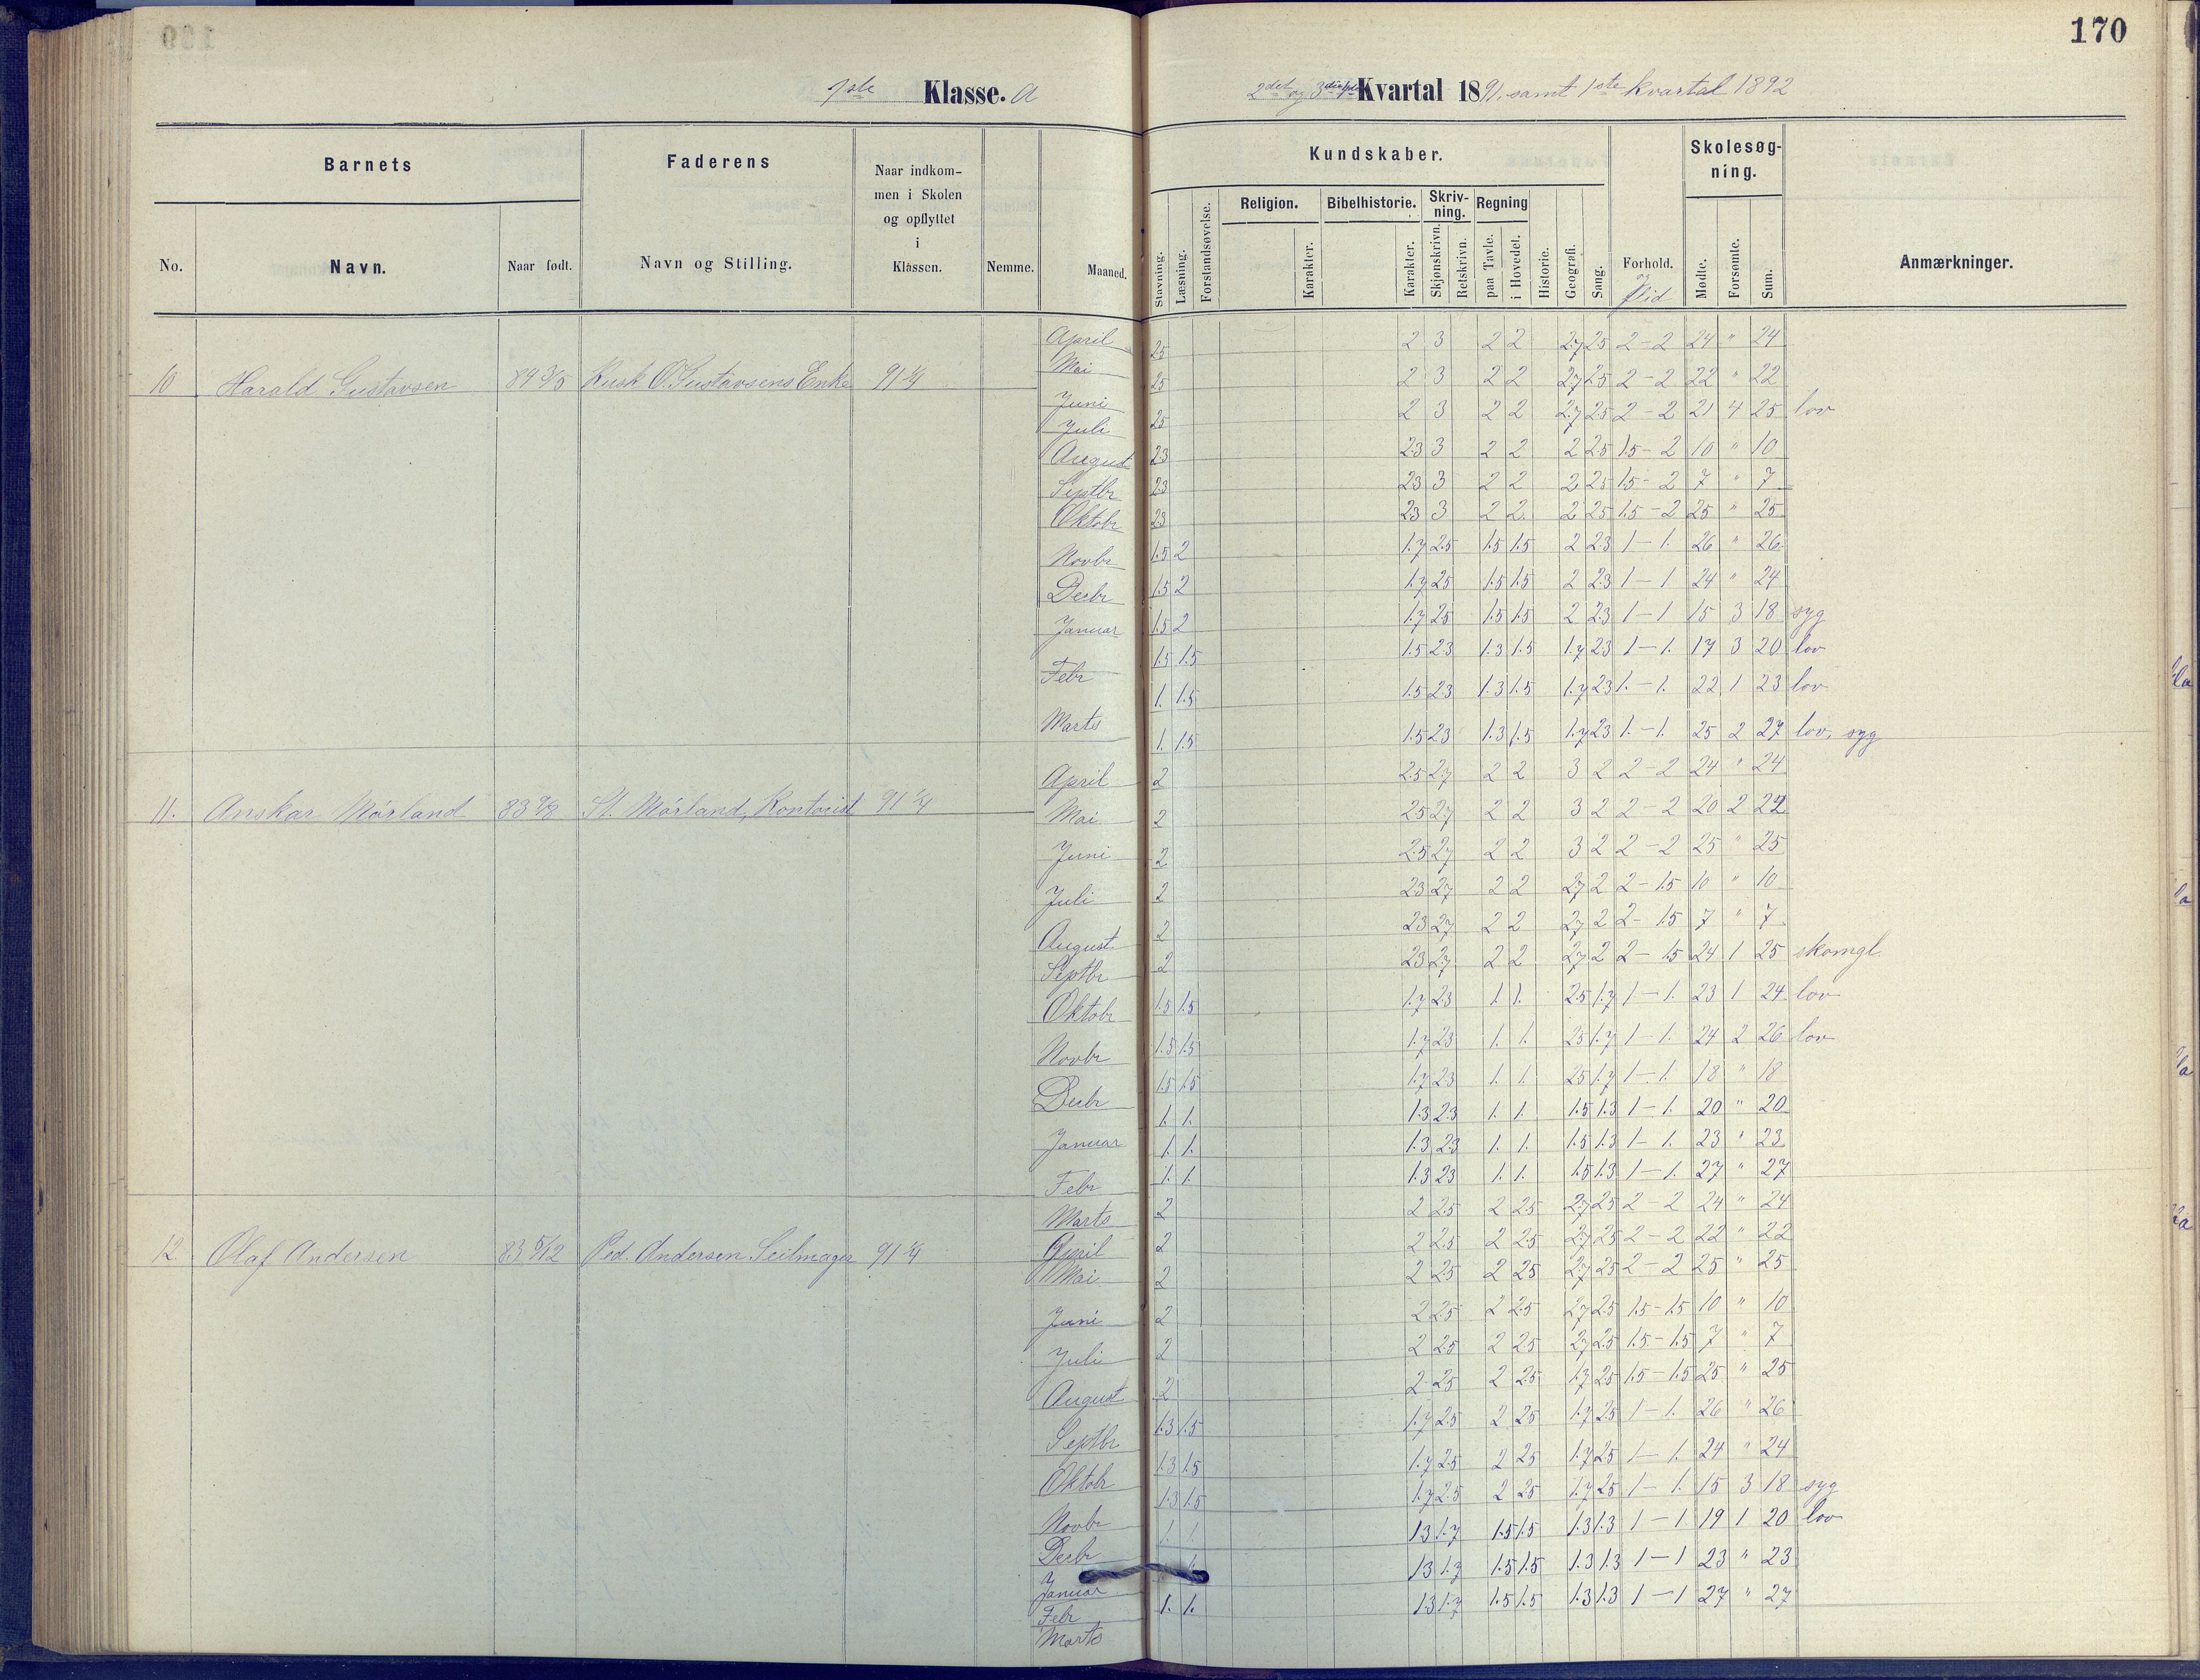 170
1ste Klasse. A
2det og 3die Kvartal 1891, samt 1ste kvartal 1892
Barnets
Faderens
Naar indkommen i Skolen og opflyttet i Klassen.
Nemme.
Maaned.
Kundskaber.
Skolesøgning.
No.
Navn.
Naar født.
Navn og Stilling.
Stavning.
Læsning.
Forstandsøvelse.
Religion.
Karakter.
Bibelhistorie.
Karakter.
Skrivning.
Skjønskrivn.
Retskrivn.
Regning
paa Tavle.
i Hovedet.
Historie.
Geografi.
Sang.
Forhold.
og Flid
Mødte.
Forsømte.
Sum.
Anmærkninger.
10 Harald Gustavsen 84 3/5 Kusk O. Gustavsens Enke 91 1/4
April 2.5 2 3 2 2 2.7 2.5 2-2 24 " 24
Mai 2.5 2 3 2 2 2.7 2.5 2-2 22 " 22
Juni 2.5 2 3 2 2 2.7 2.5 2-2 21 4 25 lov
Juli 2.3 2.3 3 2 2 2 2.5 1.5-2 10 " 10
August 2.3 2.3 3 2 2 2 2.5 1.5-2 7 " 7
Septbr 2.3 2.3 3 2 2 2 2.5 1.5-2 25 " 25
Oktobr 1.5 2 1.7 2.5 1.5 1.5 2 2.3 1-1. 26 " 26
Novbr 1.5 2 1.7 2.5 1.5 1.5 2 2.3 1-1 24 " 24
Decbr 1.5 2 1.7 2.5 1.5 1.5 2 2.3 1-1 15 3 18 syg
Januar 1.5 1.5 1.5 2.3 1.3 1.5 1.7 2.3 1-1. 17 3 20 lov
Febr 1. 1.5 1.5 2.3 1.3 1.5 1.7 2.3 1.-1. 22 1 23 lov
Marts 1. 1.5 1.5 2.3 1.3 1.5 1.7 2.3 1.-1. 25 2 27 lov, syg
11. Anskar Mórland St. Mórland, Kontorist 91 1/4
April 2 2.5 2.7 2 2 3 2 2-2 24 " 24
Mai 2 2.5 2.7 2 2 3 2 2-2 20 2 22
Juni 2 2.5 2.7 2 2 3 2 2-2 25 " 25
Juli 2 2.3 2.7 2 2 2.7 2 2-1.5 10 " 10
August 2 2.3 2.7 2 2 2.7 2 2-1.5 7 " 7
Septbr 2 2.3 2.7 2 2 2.7 2 2-1.5 24 1 25 skomgl.
Oktobr 1.5 1.5 1.7 2.3 1. 1. 2.5 1.7 1-1. 23 1 24 lov
Novbr 1.5 1.5 1.7 2.3 1. 1. 2.5 1.7 1-1. 24 2 26 lov
Decbr 1.5 1.5 1.7 2.3 1. 1. 2.5 1.7 1-1. 18 " 18
Januar 1. 1. 1.3 2.3 1. 1. 1.5 1.3 1-1. 20 " 20
Febr 1. 1. 1.3 2.3 1. 1. 1.5 1.3 1-1. 23 " 23
Marts 1. 1. 1.3 2.3 1. 1. 1.5 1.3 1-1. 27 " 27
12. Olaf Andersen 83 5/12 Ped. Andersen, Seilmager 91 1/4
April 2 2 2.5 2 2.5 2.7 2.5 2-2 24 " 24
Mai 2 2 2.5 2 2.5 2.7 2.5 2-2 22 " 22
Juni 2 2 2.5 2 2.5 2.7 2.5 2-2 25 " 25
Juli 2 2 2.5 2 2.5 2.7 2.5 1.5-1.5 10 " 10
August 2 2 2.5 2 2.5 2.7 2.5 1.5-1.5 7 " 7
Septbr 2 2 2.5 2 2.5 1.7 2.5 1.5-1.5 25 " 25
Oktobr 1.3 1.5 1.7 2.5 2 2.5 1.7 2.5 1-1. 26 " 26
Novbr 1.3 1.5 1.7 2.5 2 2.5 1.7 2.5 1-1. 24 " 24
Decbr 1.3 1.5 1.7 2.5 2 2.5 1.7 2.5 1-1. 15 3 18 syg
Januar 1. 1. 1.3 1.7 1.5 1.5 1.3 1.3 1-1 19 1 20 lov
Febr 1.3 1.7 1.5 1.5 1.3 1.3 1-1 23 " 23
Marts 1. 1. 1.3 1.7 1.5 1.5 1.3 1.3 1-1 27 " 27